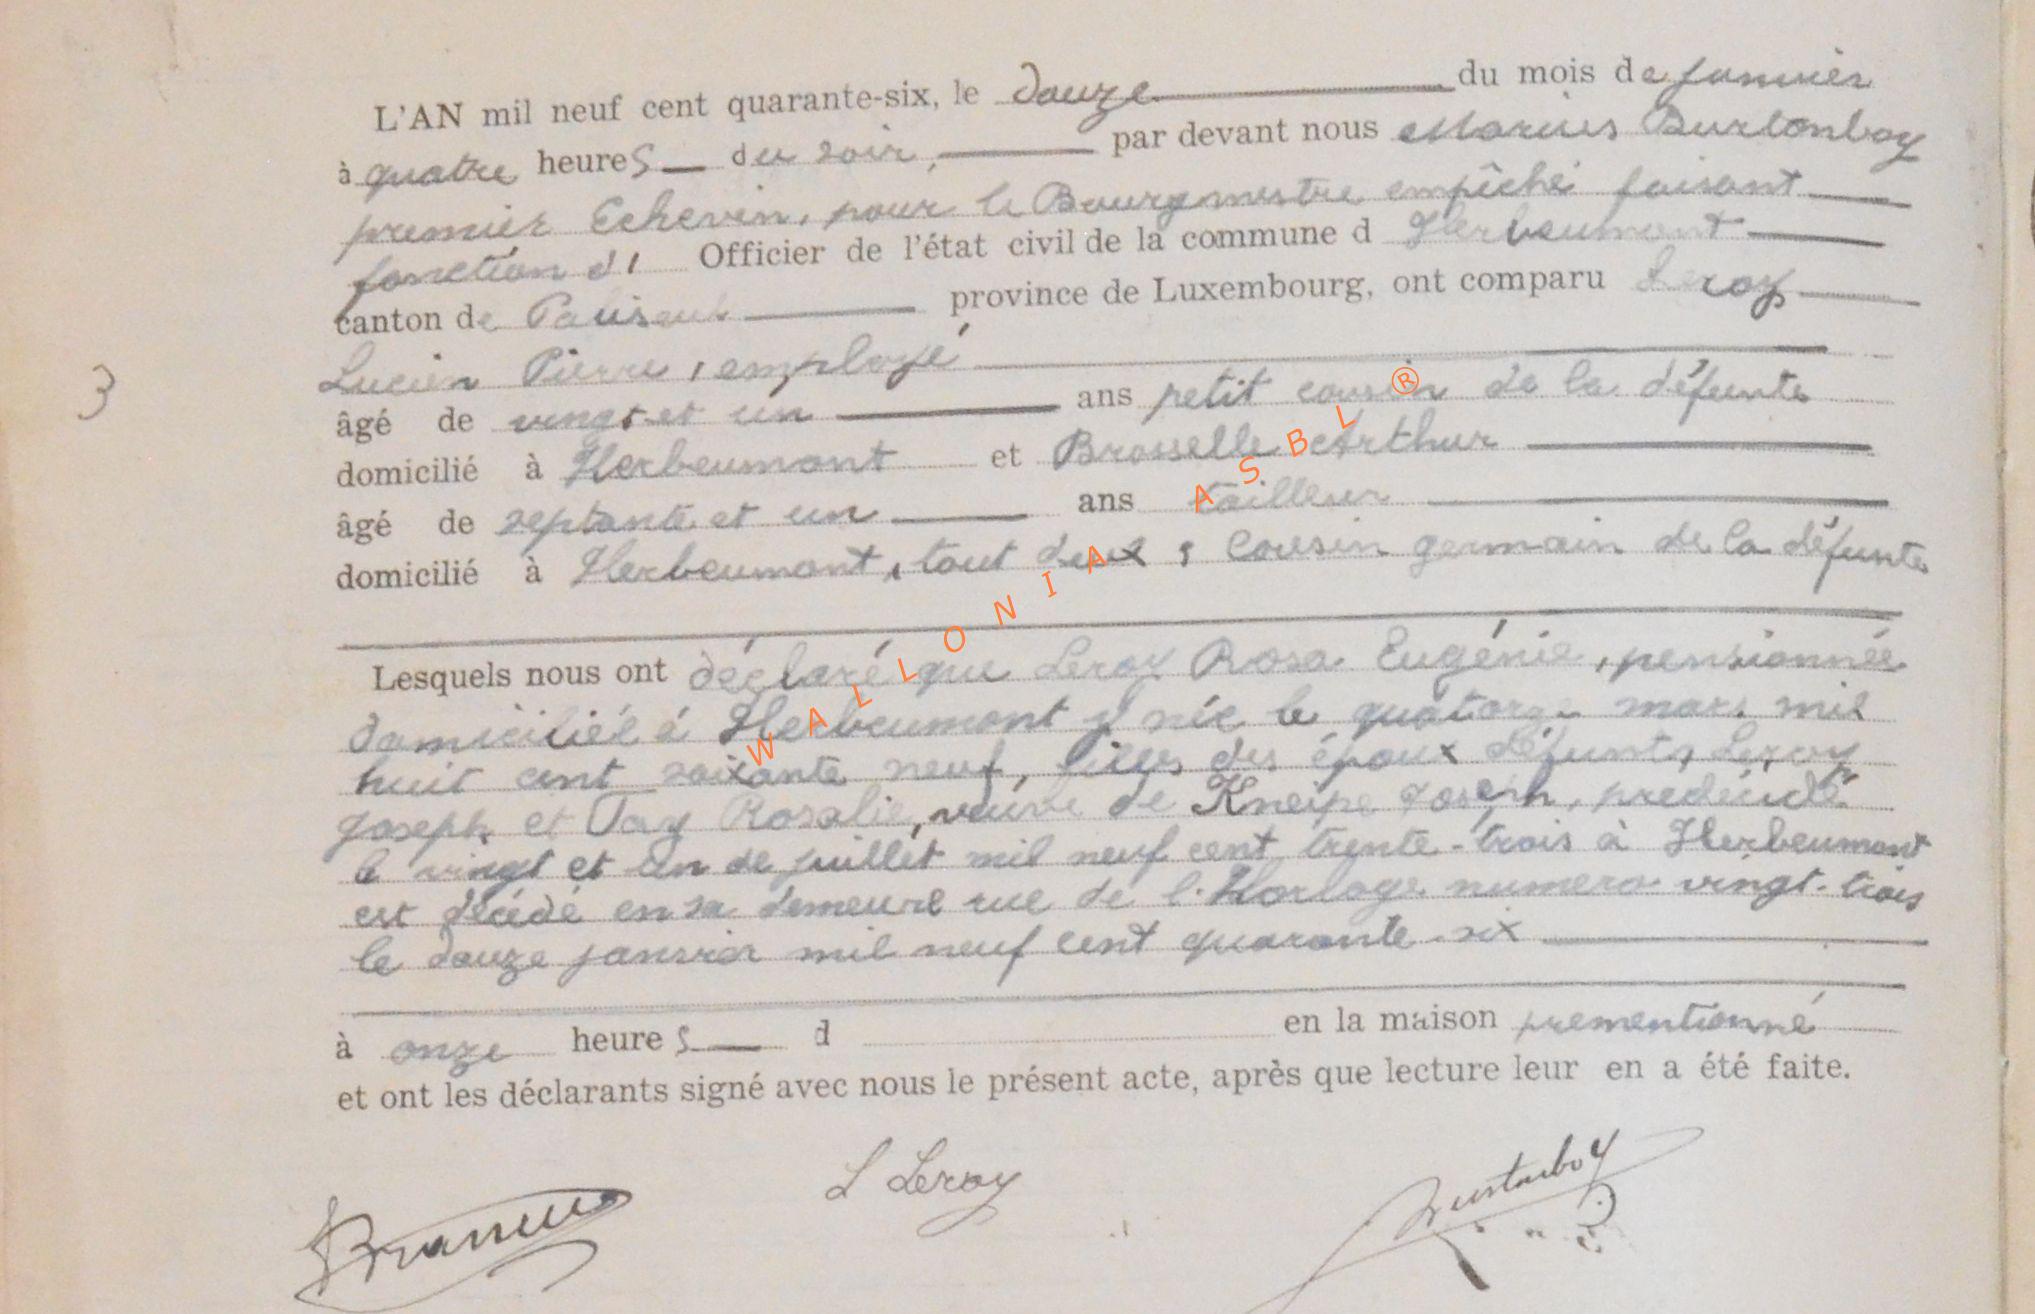 L'AN mil neuf cent quarante-six, le douze du mois de janvier
à quatre heures du soir, par devant nous Marius Burtonboy
premier Echevin, pour le Bourgmestre empêché faisant
fonction d' Officier de l'état civil de la commune d Herbeumont
canton de Paliseul province de Luxembourg, ont comparu Leroy
Lucien Pierre, employé
âgé de vingt et un ans petit cousin de la défunte
3
domicilié à Herbeumont et Brosselle Arthur
âgé de septante et un ans tailleur
domicilié à Herbeumont, tout deux, cousin germain de la défunte
Lesquels nous ont déclaré que Leroy Rosa Eugénie, pensionnée
domiciliée à Herbeumont y née le quatorze mars mil
huit cent soixante neuf, filles des époux défunts Leroy
Joseph et Jay Rosalie, veuve de Kneipe Joseph, prédécidé
le vingt et un de juillet mil neuf cent trente-trois à Herbeumont
est décédé en sa demeure rue de l'Horloge numéro vingt-trois
le douze janvier mil neuf cent quarante-six
à onze heures d en la maison prementionné
et ont les déclarants signé avec nous le présent acte, après que lecture leur en a été faite.
L Leroy
WALLONIA ASBL ®